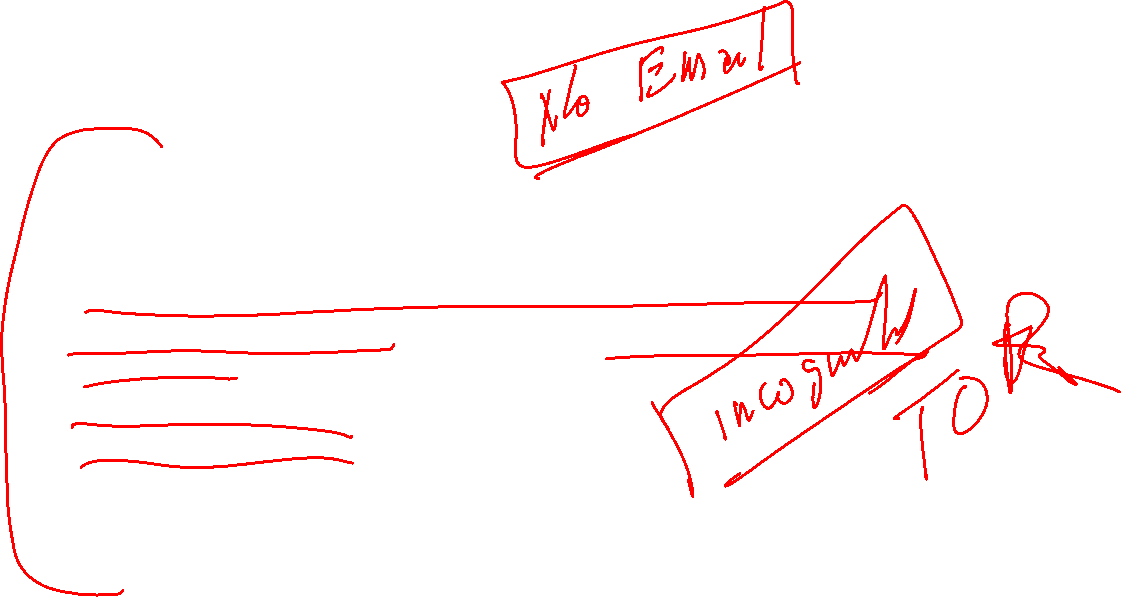 No Email
incognito
TOR